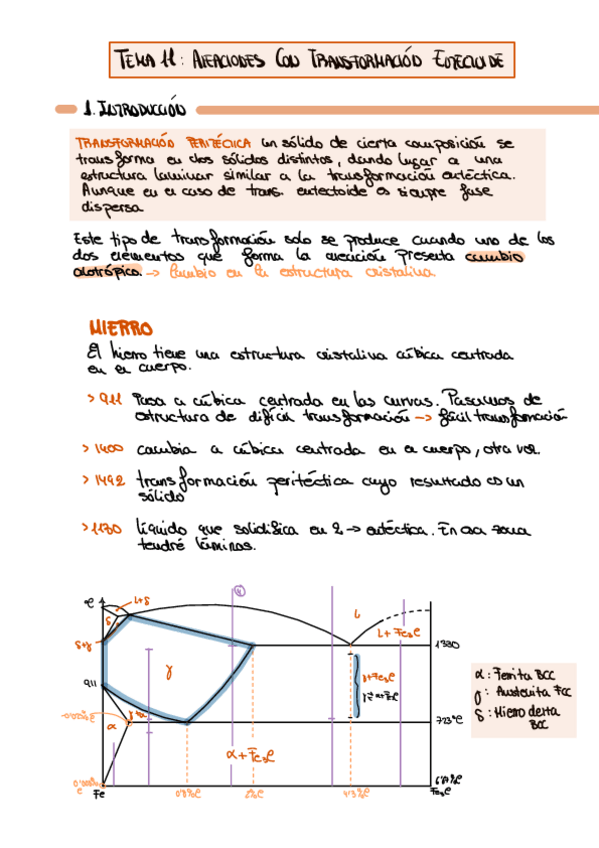 TEMA 11: ALEACIONES CON TRANSFORMACIÓN EUTECTOIDE
1. INTRODUCCIÓN
TRANSFORMACIÓN PERITÉCTICA un sólido de cierta composición se
transforma en dos sólidos distintos, dando lugar a una
estructura laminar similar a la transformación eutéctica.
Aunque en el caso de trans. eutectoide es siempre fase
dispersa
Este tipo de transformación solo se produce cuando uno de los
dos elementos que forma la aleación presenta cambio
alotrópico. -> Cambio en la estructura cristalina.
HIERRO
El hierro tiene una estructura cristalina cúbica centrada
en el cuerpo.
> 911 Pasa a cúbica centrada en las curvas. Pasamos de
estructura de difícil transformación -> fácil transformación
> 1400 cambia a cúbica centrada en el cuerpo, otra vez.
> 1492 transformación peritéctica cuyo resultado es un
sólido
> 1130 líquido que solidifica en 2 -> eutéctica. En esa zona
tendré láminas.
ºC
L+δ
δ
L
L+Fe₃C
δ+γ
1130
γ
γ+Fe₃C
911
γ+α
α
723ºC
α+Fe₃C
Fe
0'8%C
2%C
4'3%C
6'67%C
Fe₃C
α: Ferrita BCC
γ: Austenita FCC
δ: Hierro delta
BCC